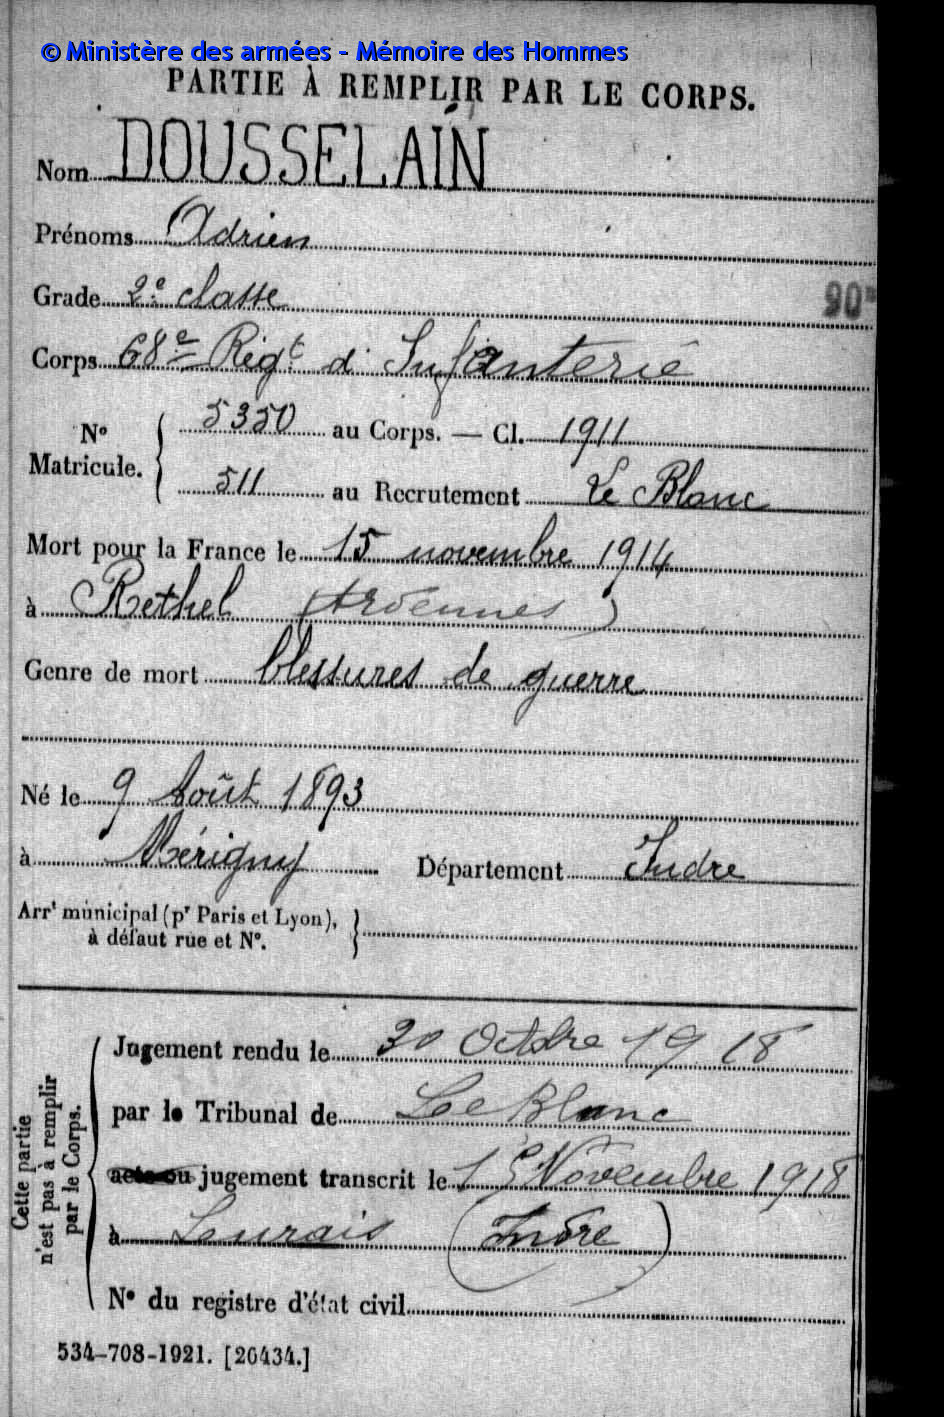 © Ministère des armées - Mémoire des Hommes
PARTIE À REMPLIR PAR LE CORPS.
Nom DOUSSELAIN
Prénoms Adrien
Grade 2e classe
90
Corps 68e Régt d'Infanterie
No Matricule. { 5350 au Corps. — Cl. 1911
511 au Recrutement Le Blanc
Mort pour la France le 15 novembre 1914
à Rethel (Ardennes)
Genre de mort blessures de guerre
Né le 9 Août 1893
à Mérigny Département Indre
Arrt municipal (pr Paris et Lyon), à défaut rue et No. }
Cette partie n'est pas à remplir par le Corps.
Jugement rendu le 30 Octobre 1918
par le Tribunal de Le Blanc
acte ou jugement transcrit le 15 Novembre 1918
à Lurais (Indre)
No du registre d'état civil
534-708-1921. [26434.]